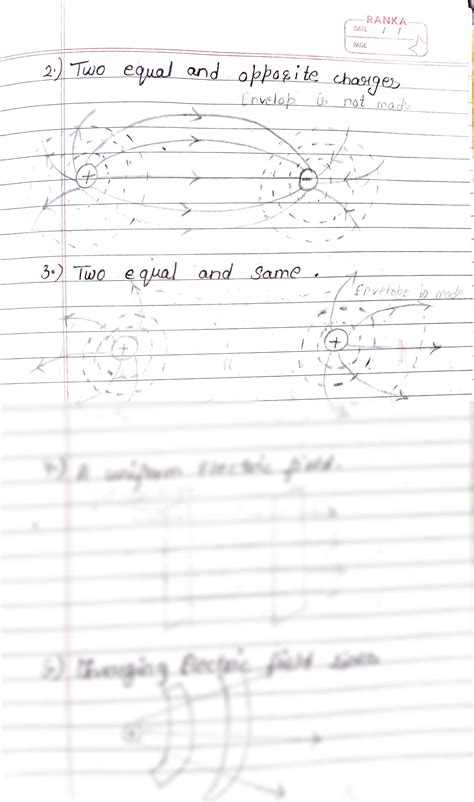 RANKA
DATE / /
PAGE
2.) Two equal and opposite charges
Envelop is not made
+ −
3.) Two equal and same .
Envelope is made
+ +
4.) A uniform Electric field.
5.) Electric field lines